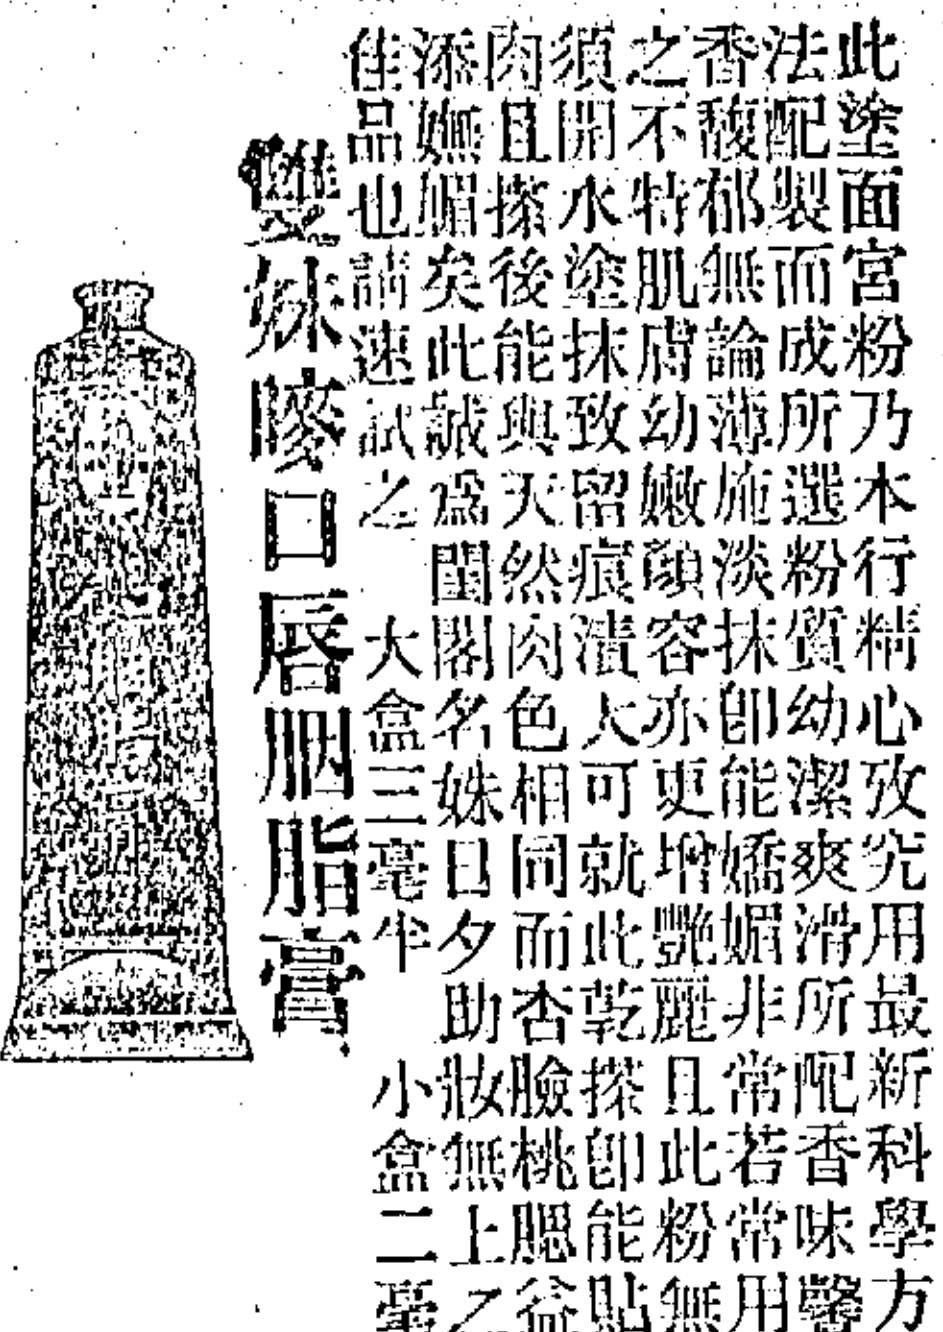 此塗面宮粉乃本行精心攷究用最新科學方
法配製而成所選粉質幼潔爽滑所配香味馨
香馥郁無論薄施淡抹即能嬌媚非常若常用
之不特肌膚幼嫩顏容亦更增艷麗且此粉無
須開水塗抹致留痕漬人可就此乾搽即能貼
肉且搽後能與天然肉色相同而杏臉桃腮益
添嫵媚矣此誠為閨閣名姝日夕助妝無上之
佳品也請速試之 大盒三毫半 小盒二毫
雙妹嘜口唇胭脂膏